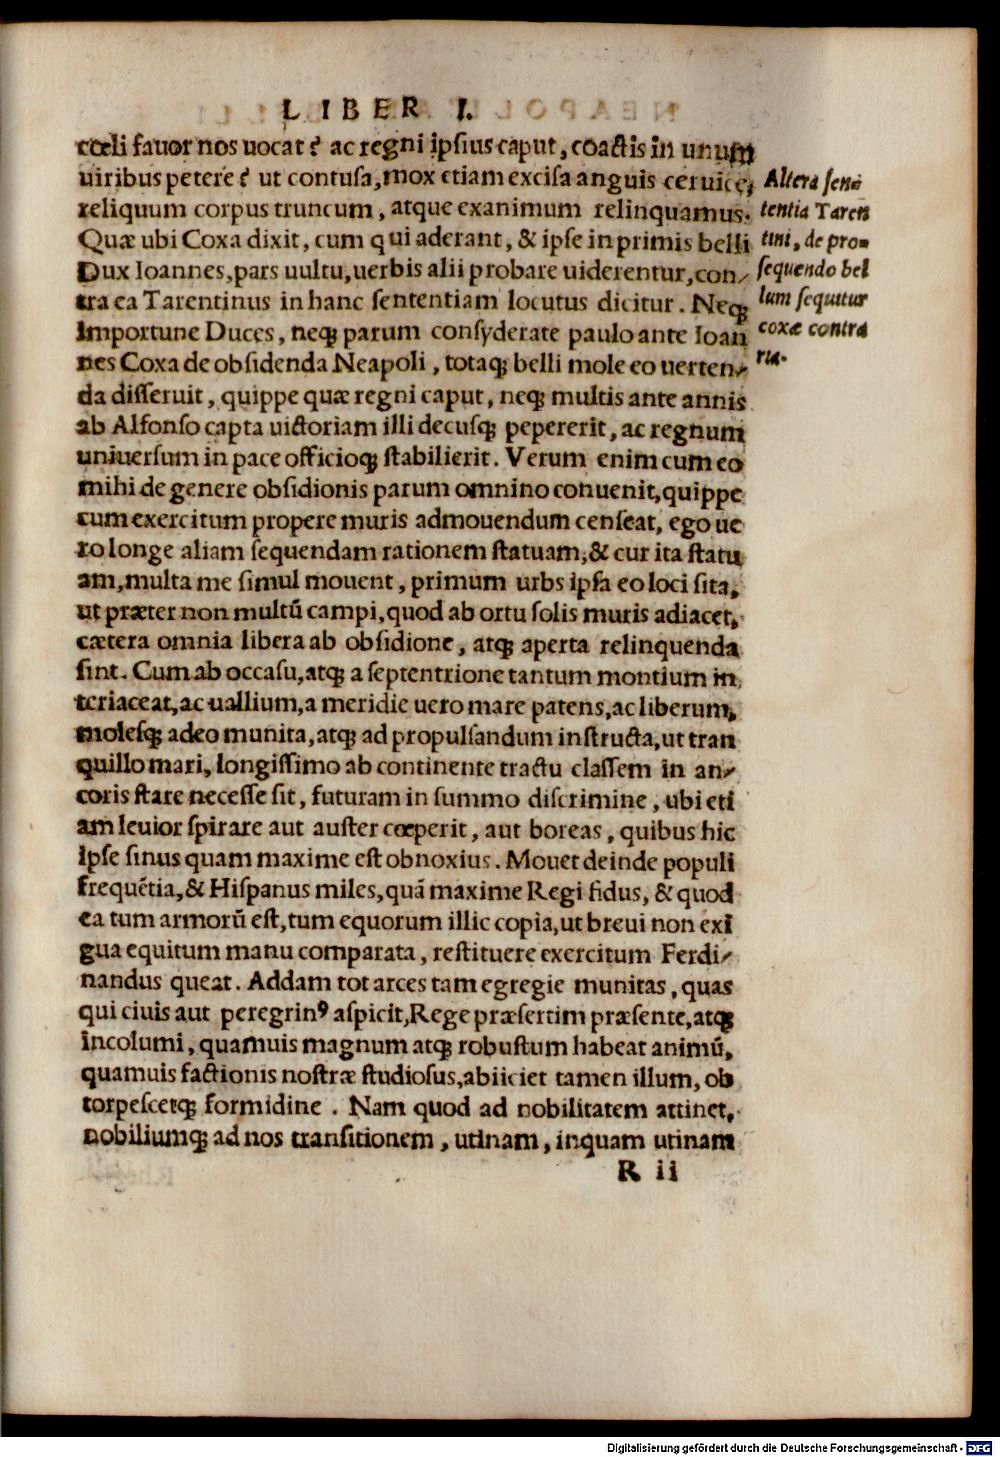 LIBER I.
cœli favor nos uocat? ac regni ipsius caput, coactis in unum
uiribus petere? ut contusa, mox etiam excisa anguis ceruice,
reliquum corpus truncum, atque exanimum relinquamus.
Quæ ubi Coxa dixit, cum qui aderant, & ipse in primis belli
Dux Ioannes, pars uultu, uerbis alii probare uiderentur, con-
tra ea Tarentinus in hanc sententiam locutus dicitur. Neqꝫ
importune Duces, neqꝫ parum consyderate paulo ante Ioan
nes Coxa de obsidenda Neapoli, totaqꝫ belli mole eo uerten-
da disseruit, quippe quæ regni caput, neqꝫ multis ante annis
ab Alfonso capta uictoriam illi decusqꝫ pepererit, ac regnum
uniuersum in pace officioqꝫ stabilierit. Verum enim cum eo
mihi de genere obsidionis parum omnino conuenit, quippe
cum exercitum propere muris admouendum censeat, ego ue
ro longe aliam sequendam rationem statuam, & cur ita statu
am, multa me simul mouent, primum urbs ipsa eo loci sita,
ut præter non multū campi, quod ab ortu solis muris adiacet,
cætera omnia libera ab obsidione, atqꝫ aperta relinquenda
sint. Cum ab occasu, atqꝫ a septentrione tantum montium in
teriaceat, ac uallium, a meridie uero mare patens, ac liberum,
molesqꝫ adeo munita, atqꝫ ad propulsandum instructa, ut tran
quillo mari, longissimo ab continente tractu classem in an-
coris stare necesse sit, futuram in summo discrimine, ubi eti
am leuior spirare aut auster cœperit, aut boreas, quibus hic
ipse sinus quam maxime est obnoxius. Mouet deinde populi
frequētia, & Hispanus miles, quā maxime Regi fidus, & quod
ea tum armorū est, tum equorum illic copia, ut breui non exi
gua equitum manu comparata, restituere exercitum Ferdi-
nandus queat. Addam tot arces tam egregie munitas, quas
qui ciuis aut peregrinꝰ aspicit, Rege præsertim præsente, atqꝫ
incolumi, quamuis magnum atqꝫ robustum habeat animū,
quamuis factionis nostræ studiosus, abiiciet tamen illum, ob
torpescetqꝫ formidine. Nam quod ad nobilitatem attinet,
nobiliumqꝫ ad nos transitionem, utinam, inquam utinam
R ii
Altera sen-
tentia Taren
tini, de pro-
sequendo bel
lum sequitur
coxæ contra
ria.
Digitalisierung gefördert durch die Deutsche Forschungsgemeinschaft - DFG